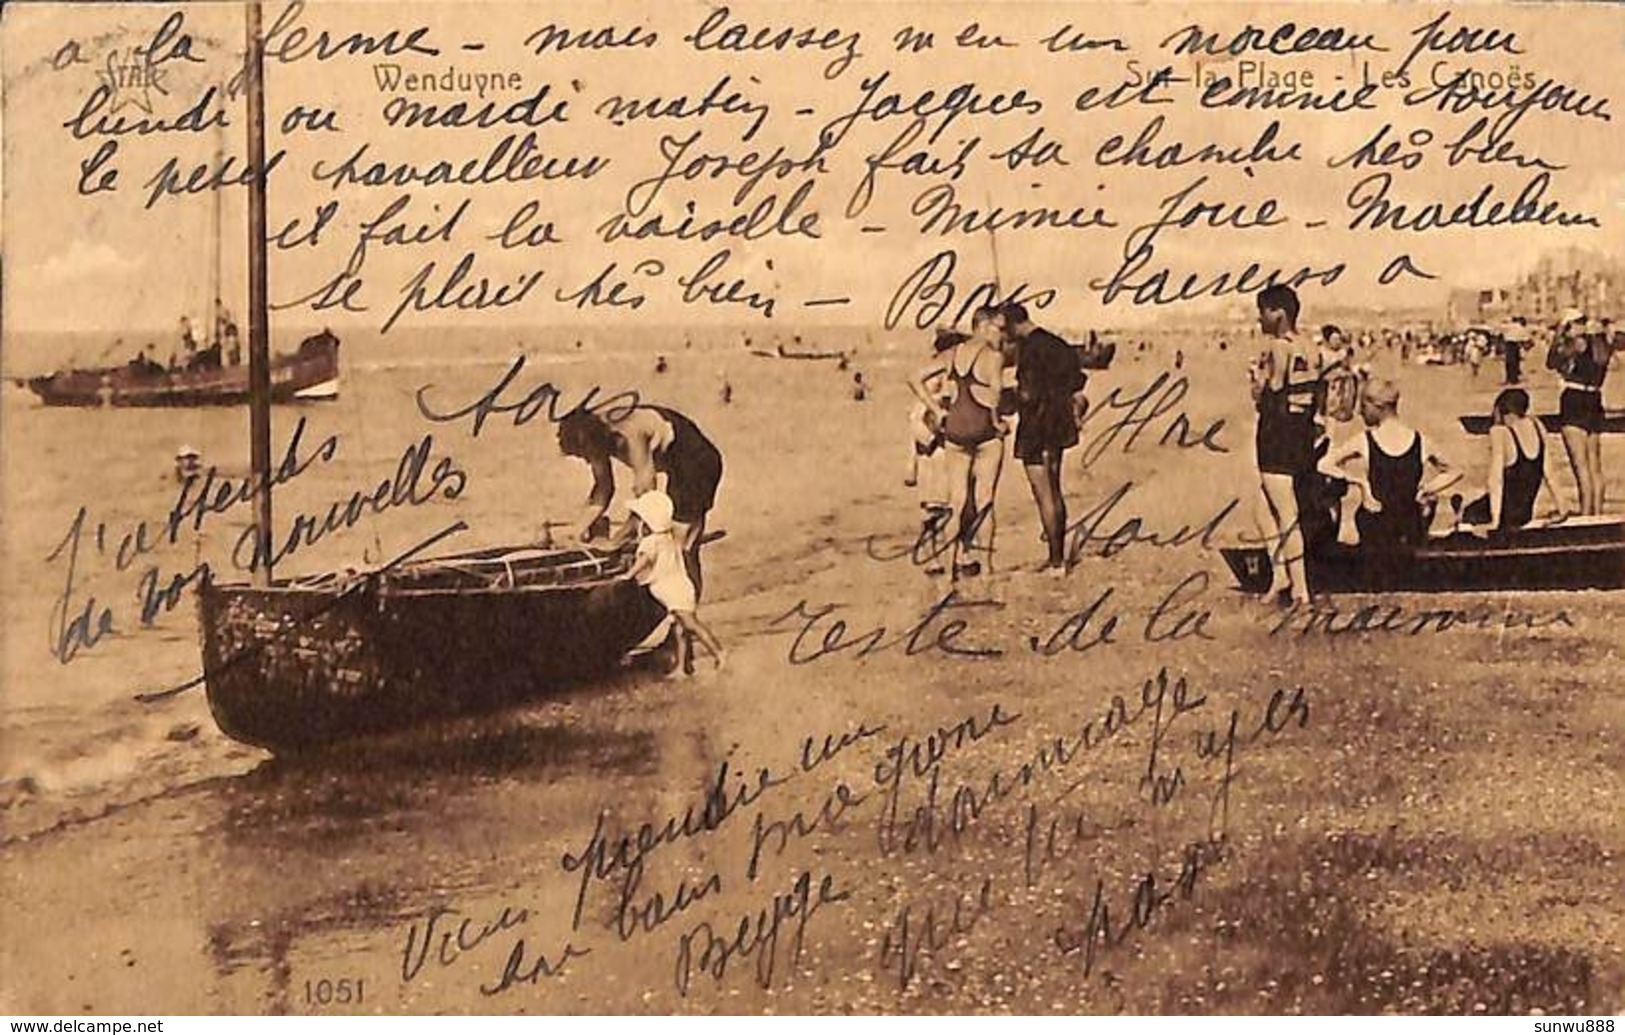 a la ferme - mais laissez m'en un morceau pour
STAR
Wenduyne
Sur la Plage - Les Canoës
lundi ou mardi matin - Jacques est comme toujours
le petit travailleur Joseph fait sa chambre très bien
il fait la vaiselle - Mimie Joue - Madeleine
se plait très bien - Bons baisers a
tous
J'attends
de vos nouvelles
et tout
reste de la maison
Viens prendre un
bain
dommage
que tu n'y es
pas
1051
www.delcampe.net
sunwu888